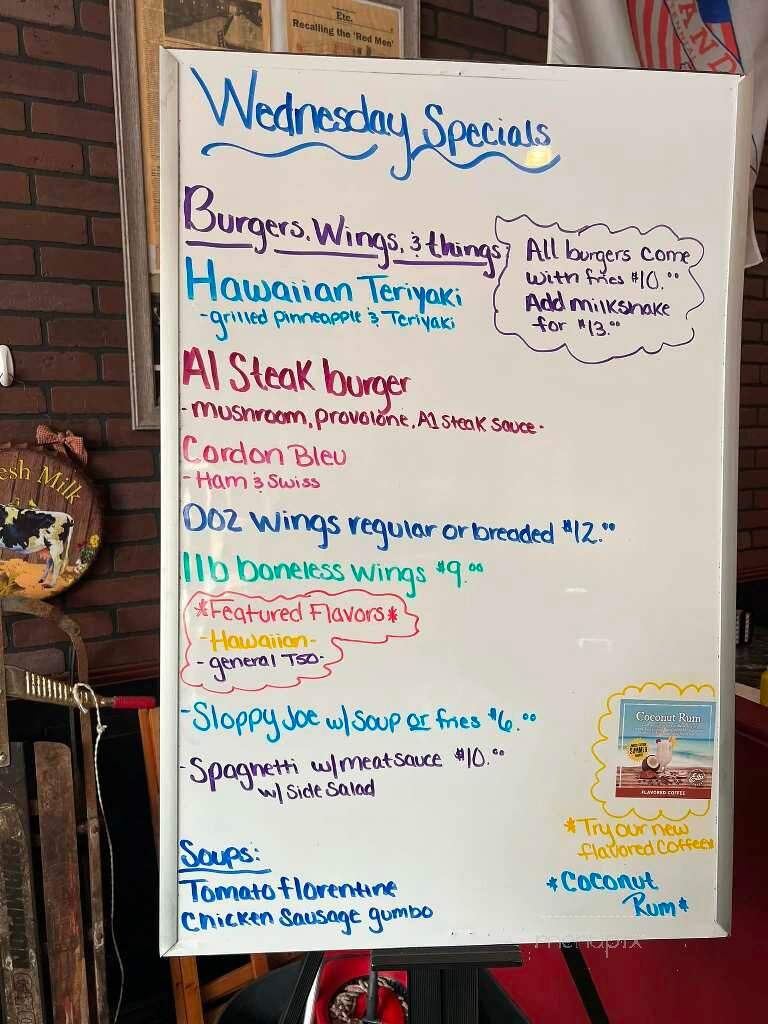 Etc.
Recalling the 'Red Men'
AND
Wednesday Specials
Burgers, Wings, & things
All burgers come
with fries $10.00
Add milkshake
for $13.00
Hawaiian Teriyaki
-grilled pinneapple & Teriyaki
A1 Steak burger
-mushroom, provolone, A1 steak sauce-
Cordon Bleu
- Ham & Swiss
Doz wings regular or breaded $12.00
1lb boneless wings $9.00
*Featured Flavors*
-Hawaiian-
- general TSO-
-Sloppy Joe w/soup or fries $6.00
-Spaghetti w/meatsauce $10.00
w/ side salad
Coconut Rum
SUMMER
FLAVORED COFFEE
*Try our new
flavored Coffees
*Coconut
Rum*
Soups:
Tomato florentine
Chicken sausage gumbo
esh Milk
menupix